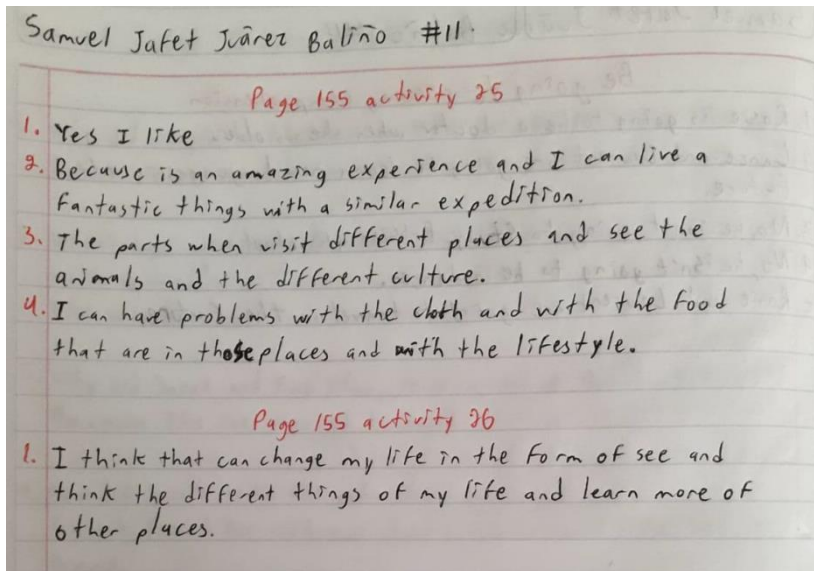 Samuel Jafet Juárez Baliño #11.
Page 155 activity 25
1. Yes I like
2. Because is an amazing experience and I can live a
fantastic things with a similar expedition.
3. The parts when visit different places and see the
animals and the different culture.
4. I can have problems with the cloth and with the food
that are in those places and with the lifestyle.
Page 155 activity 26
1. I think that can change my life in the form of see and
think the different things of my life and learn more of
other places.